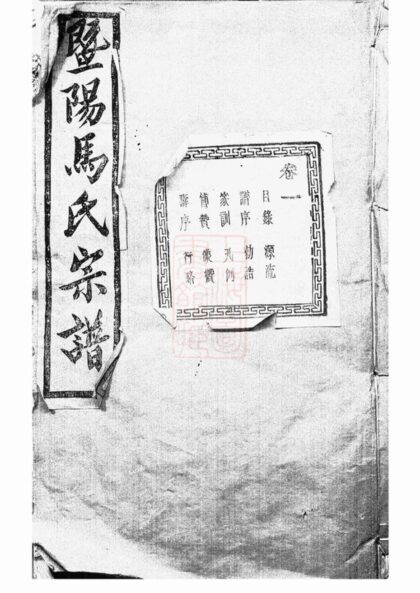 暨陽馬氏宗譜
卷一
目錄 源流
譜序 勅誥
家訓 凡例
傳贊 像贊
壽序 行略